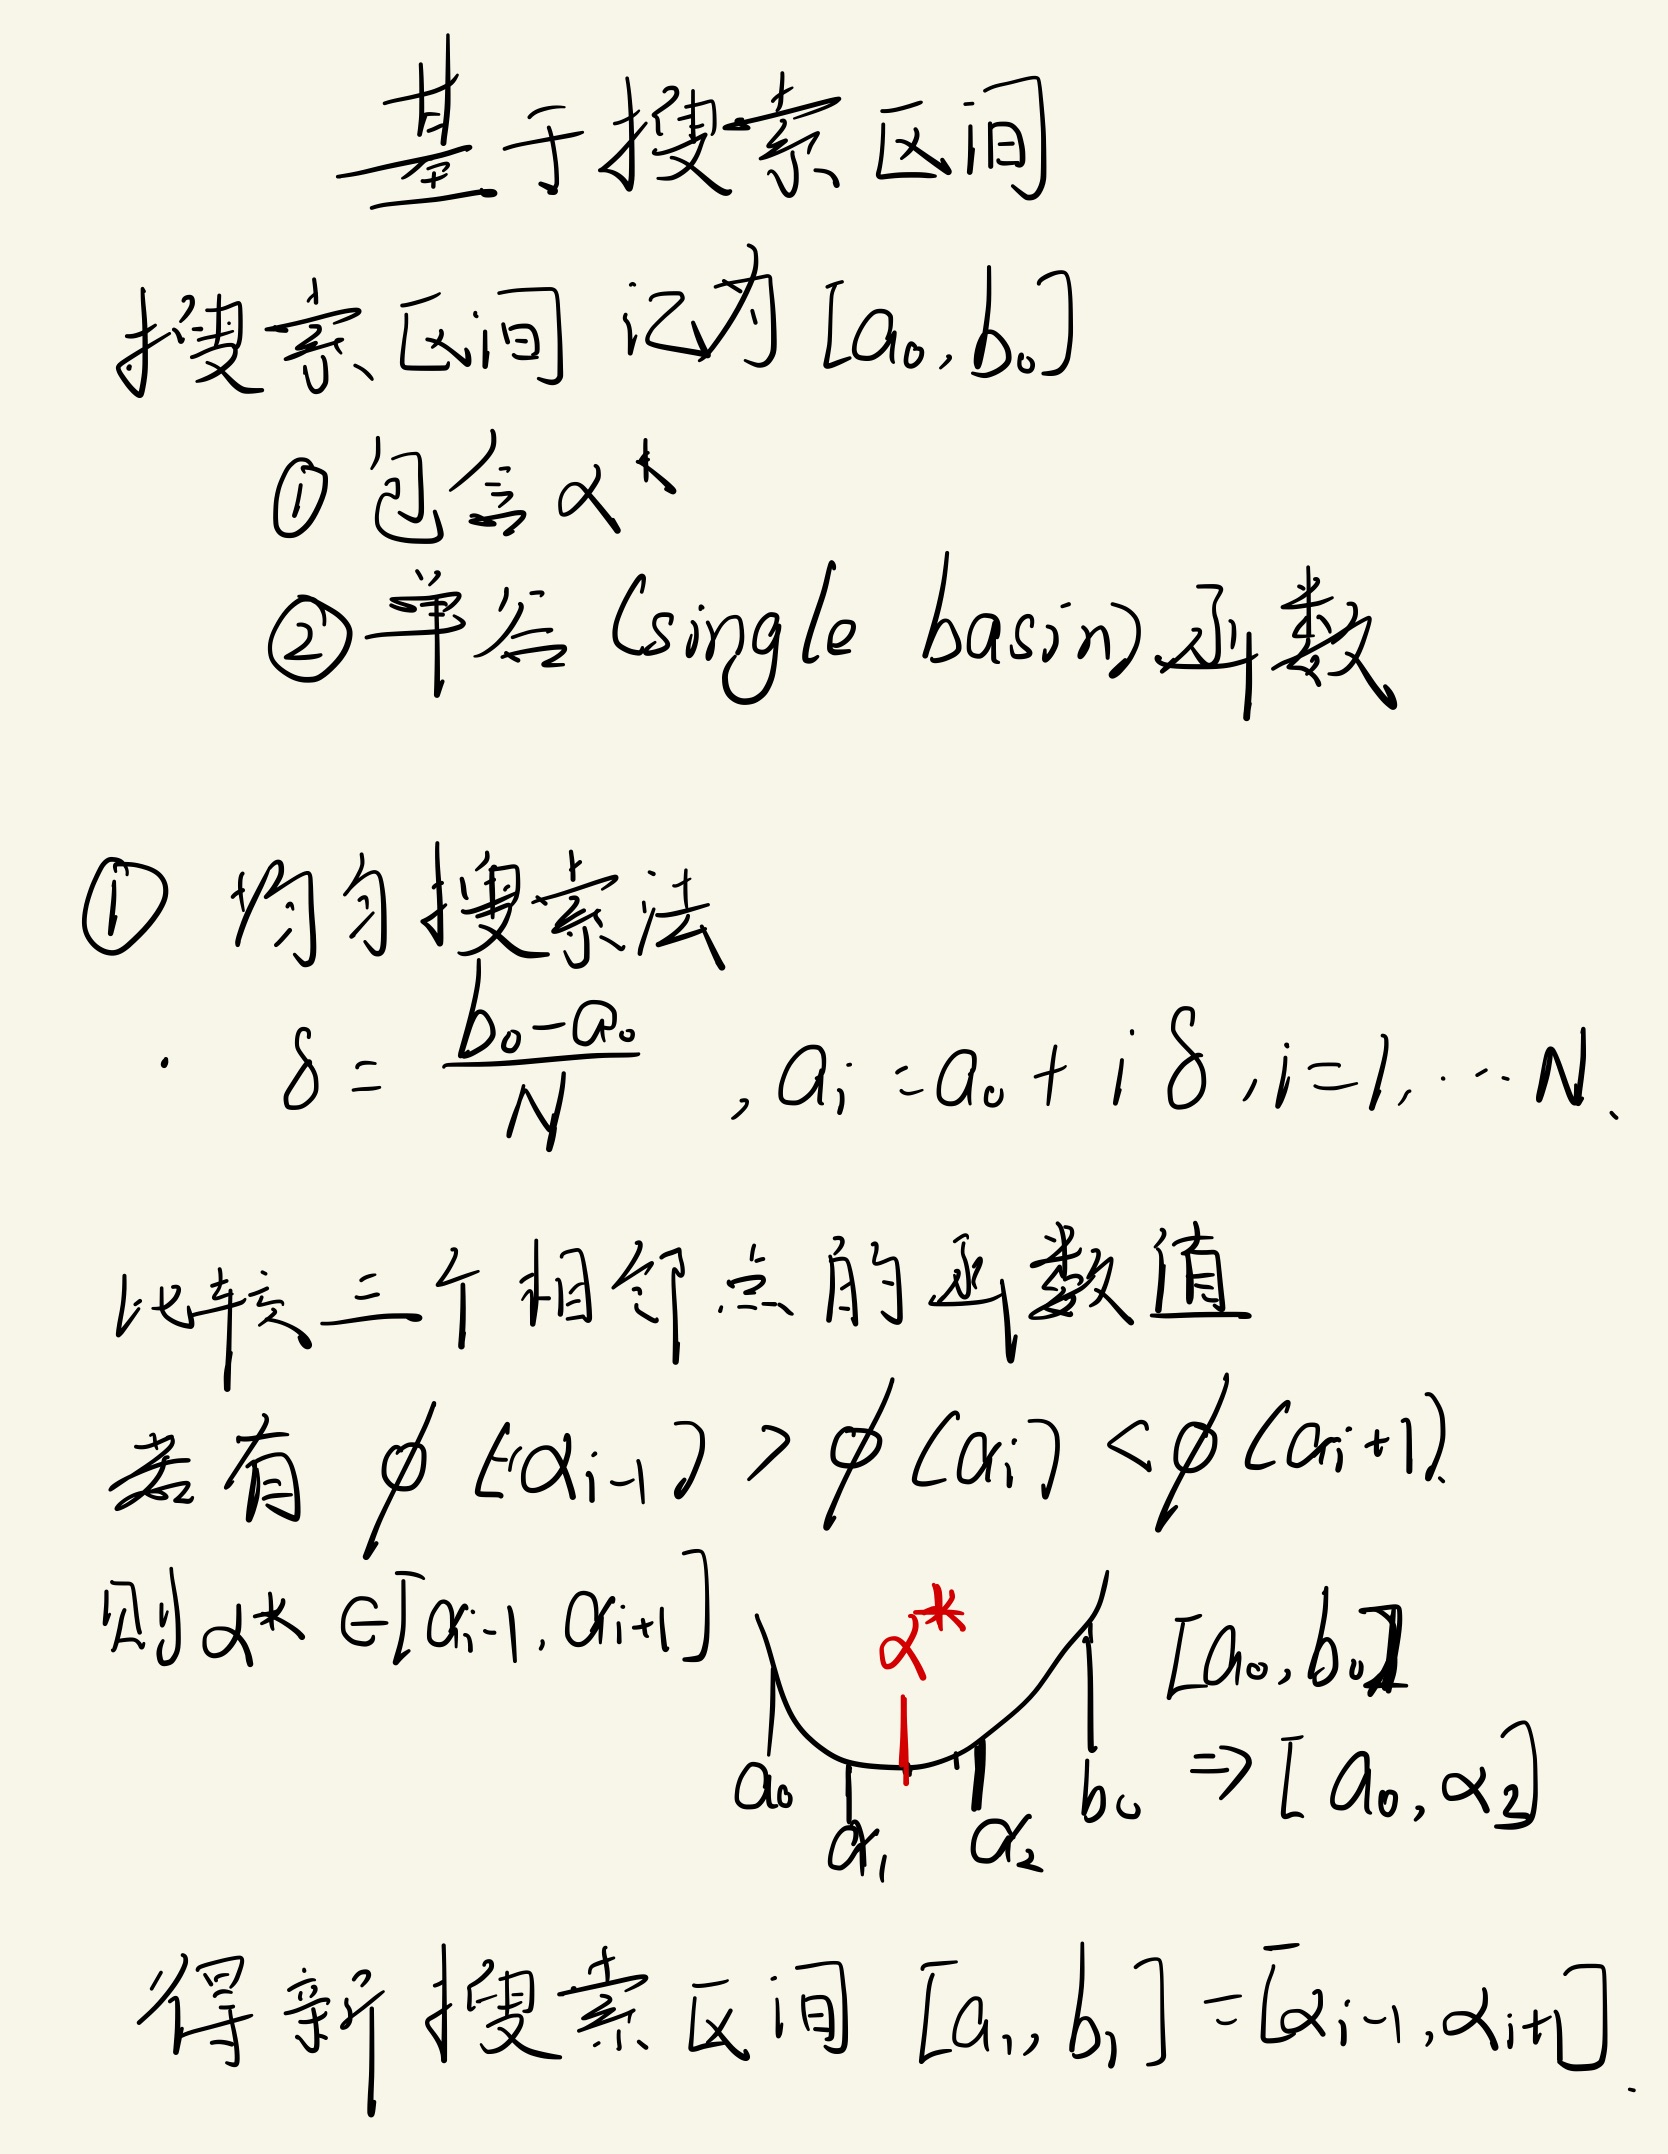 基于搜索区间
搜索区间 记为 [a₀, b₀]
① 包含 α*
② 单谷 (single basin) 函数
① 均匀搜索法
· δ = (b₀-a₀)/N , aᵢ = a₀ + i δ, i=1, ... N.
比较三个相邻点的函数值
若有 ϕ(αᵢ₋₁) > ϕ(αᵢ) < ϕ(αᵢ₊₁).
则 α* ∈ [αᵢ₋₁, αᵢ₊₁]
α*
a₀
α₁
α₂
b₀
[a₀, b₀]
⇒ [a₀, α₂]
得新搜索区间 [a₁, b₁] = [αᵢ₋₁, αᵢ₊₁].